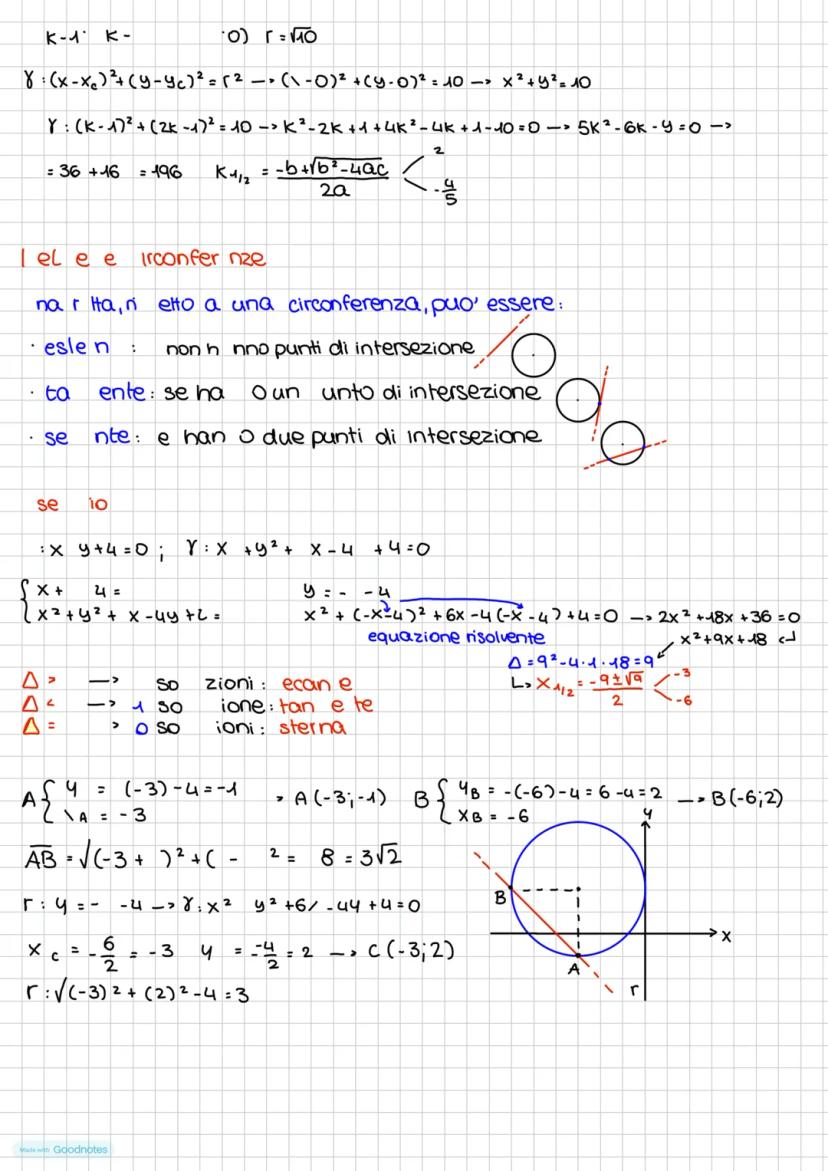 K-1 K- 0) r=√10
γ:(x-x_c)²+(y-y_c)²=r² → ( -0)²+(y-0)²=10 → x²+y²=10
γ:(k-1)²+(2k-1)²=10 → k²-2k+1+4k²-4k+1-10=0 → 5k²-6k-y=0 →
=36+16 =196 K₁/₂ = -b+√b²-4ac / 2a < 2 -4/5
na r tta, ri etto a una circonferenza, puo' essere:
· : non h nno punti di intersezione
· ta ente: se ha un unto di intersezione
· se nte: e han o due punti di intersezione
:x y+4=0; γ:x +y²+ x-4 +4=0
{ x+ 4= y=- -4
x²+y²+ x-4y+ = x²+(-x-4)²+6x-4(-x-4)+4=0 → 2x²+18x+36=0
equazione risolvente x²+9x+18
Δ=9²-4·1·18=9
Δ > → so zioni: ecan e
Δ < → 1 so ione: tan e te
Δ = > 0 so ioni: sterna
L> x₁/₂ = -9±√9 / 2 < -3 -6
A{ y = (-3)-4=-1 A = -3 → A(-3;-1) B{ y_B = -(-6)-4=6-4=2 x_B = -6 → B(-6;2)
AB = √(-3+ )²+( - ² = 8 = 3√2
r: y=- -4 → γ:x² y²+6 -4y+4=0
x_c = -6/2 = -3 y = --4/2 = 2 → C(-3;2)
r:√(-3)²+(2)²-4=3
y
B
x
A
r
Made with Goodnotes